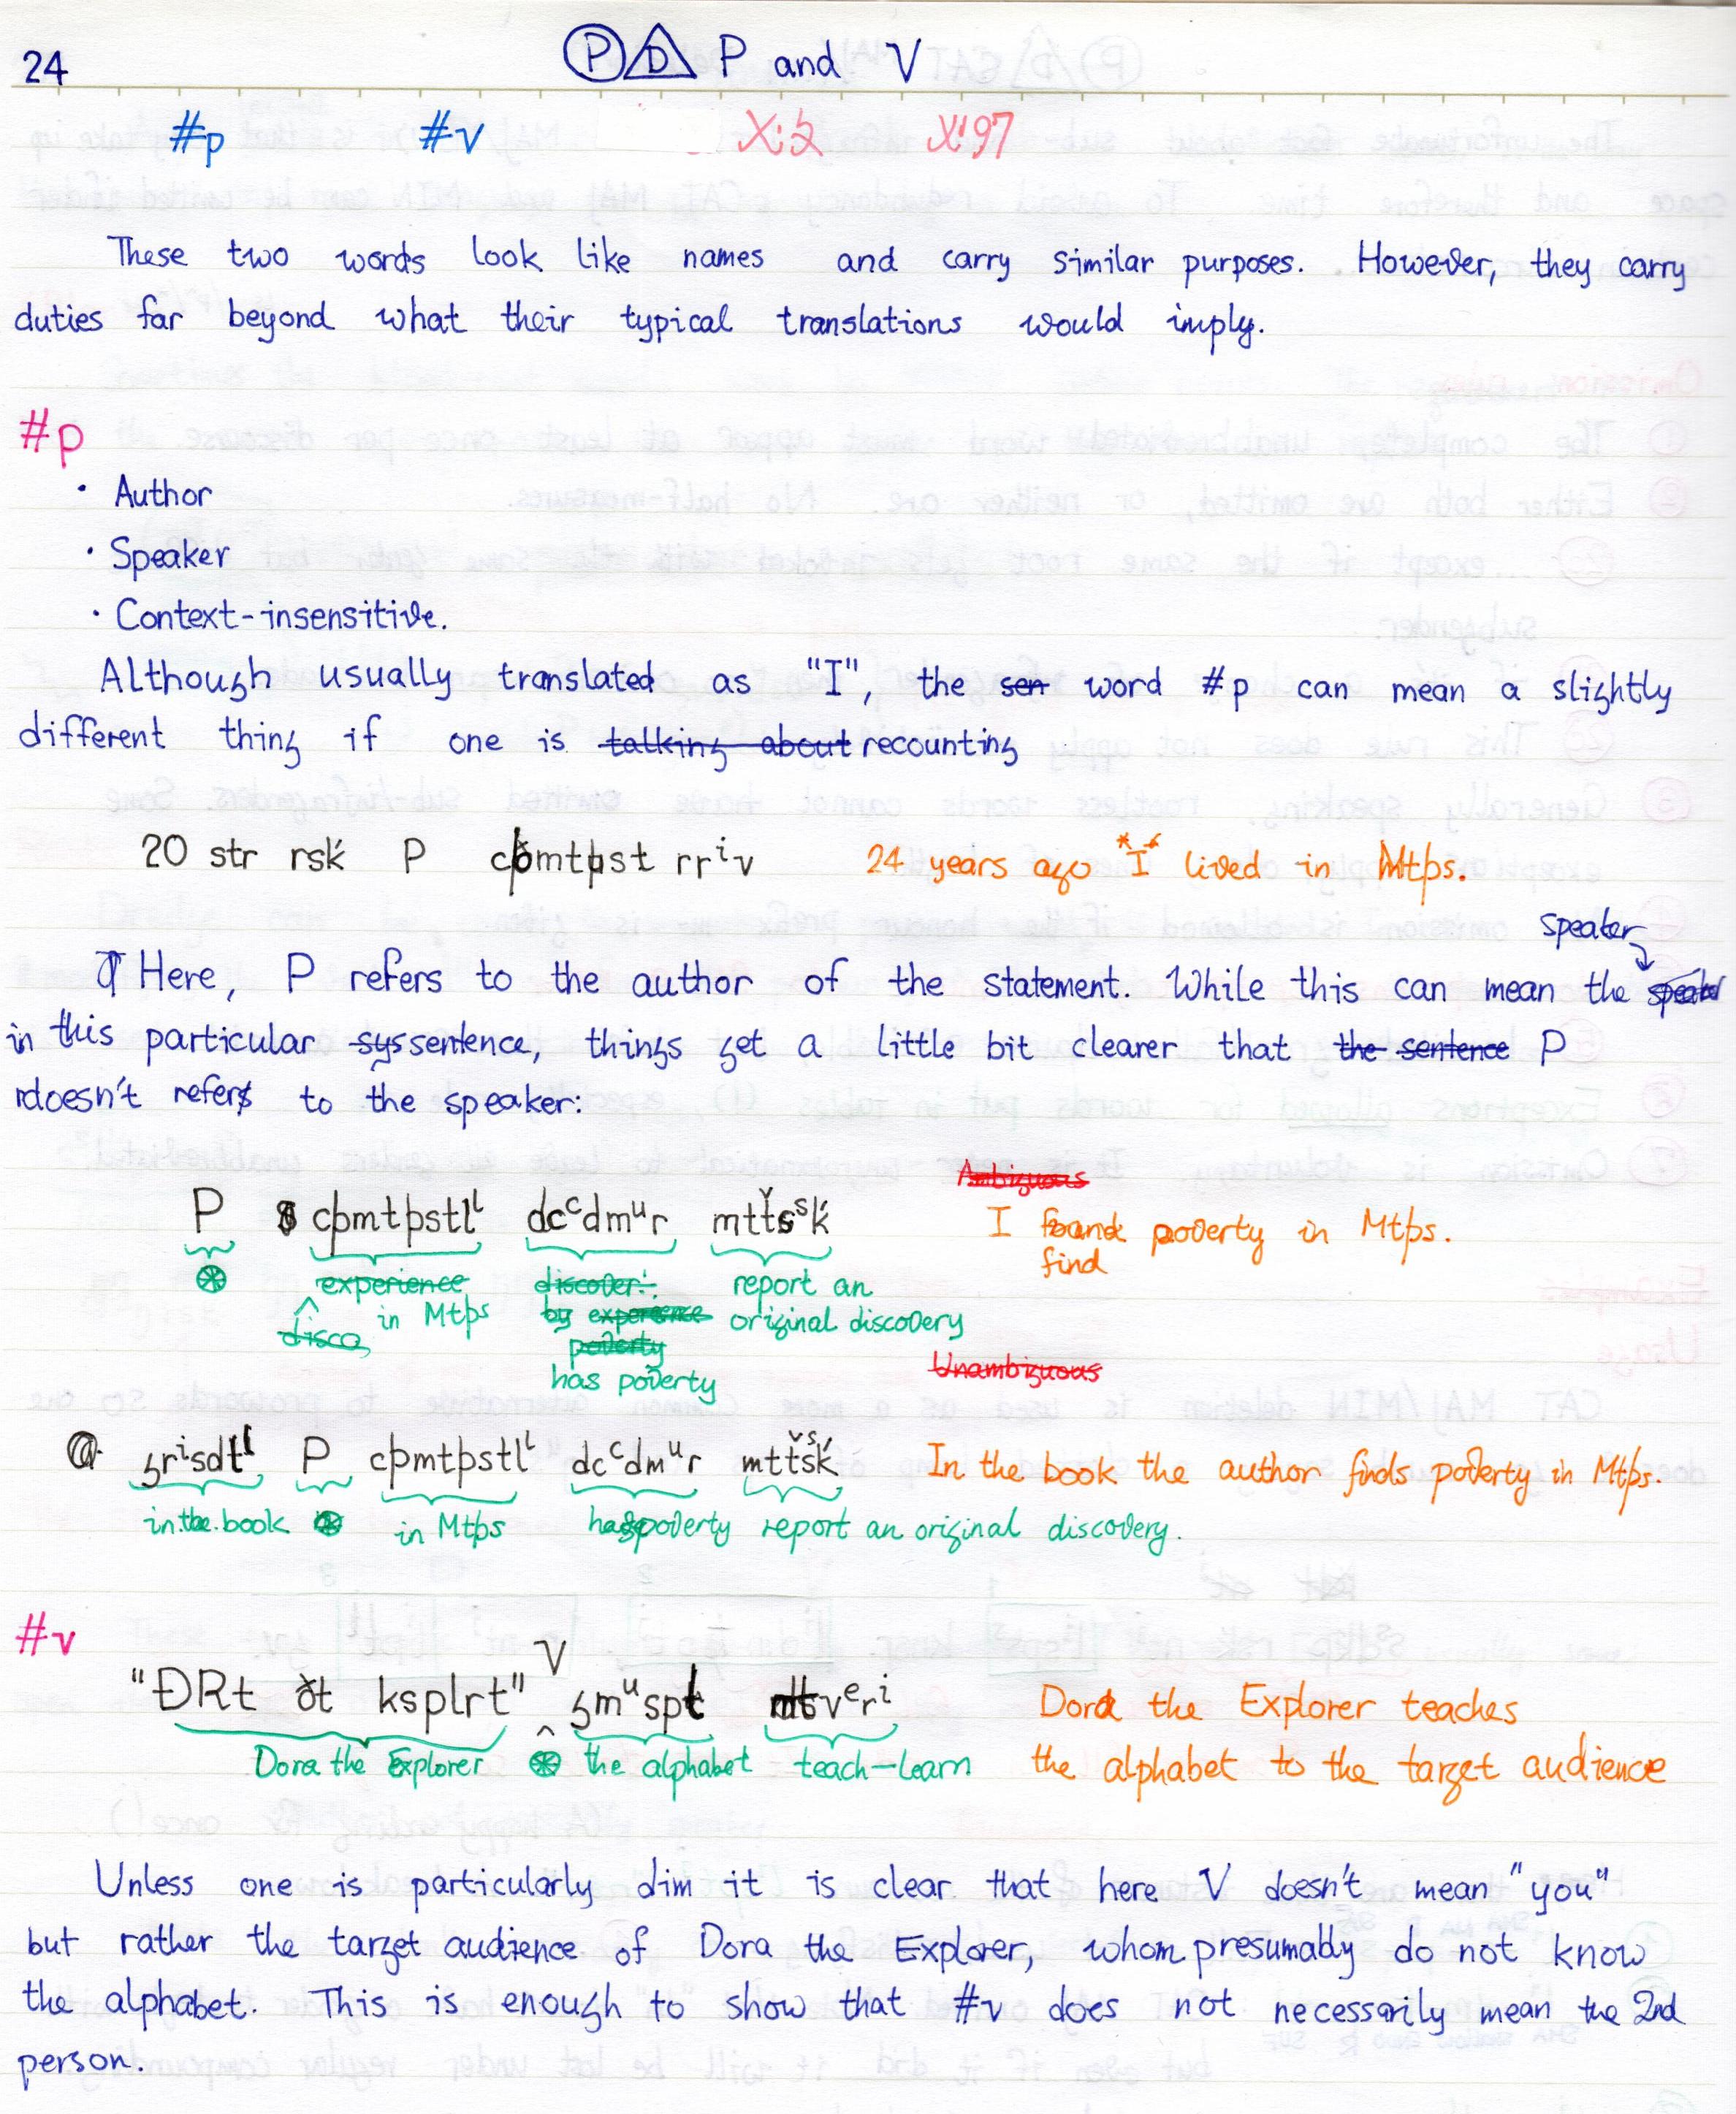 24
Ⓟ D P and V
#p #v X:2 X:97
These two words look like names and carry similar purposes. However, they carry
duties far beyond what their typical translations would imply.
#p
· Author
· Speaker
· Context-insensitive.
Although usually translated as "I", the sen word #p can mean a slightly
different thing if one is talking about recounting
20 str rsḱ P cþmtþst rrⁱv 24 years ago "I" lived in Mtþs.
speaker
Here, P refers to the author of the statement. While this can mean the
in this particular sys sentence, things get a little bit clearer that the sentence P
doesn't refers to the speaker:
Ambiguous
P cþmtþstlˡ dcᶜdmᵘr mtťsˢḱ I found poverty in Mtþs.
find
⊛ experience discover: report an
disco in Mtþs by experience original discovery
poverty
has poverty
Unambiguous
ʒrⁱsdtˡ P cþmtþstlˡ dcᶜdmᵘr mtťšḱ In the book the author finds poverty in Mtþs.
in the book ⊛ in Mtþs has poverty report an original discovery.
#v
V
"ÐRt ðt ksplrt" ʒmᵘspt vᵉrⁱ Dora the Explorer teaches
Dora the Explorer ⊛ the alphabet teach-learn the alphabet to the target audience
Unless one is particularly dim it is clear that here V doesn't mean "you"
but rather the target audience of Dora the Explorer, whom presumably do not know
the alphabet. This is enough to show that #v does not necessarily mean the 2nd
person.